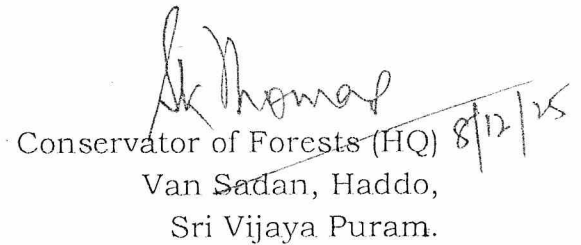 Sk Thomas
Conservator of Forests (HQ) 8/12/25
Van Sadan, Haddo,
Sri Vijaya Puram.